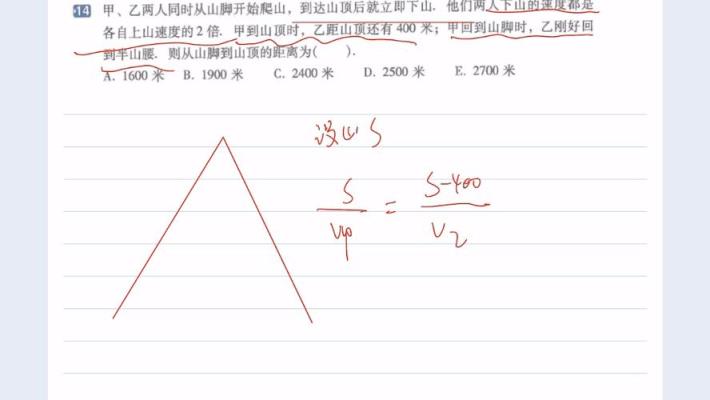 14 甲、乙两人同时从山脚开始爬山，到达山顶后就立即下山．他们两人下山的速度都是
各自上山速度的 2 倍．甲到山顶时，乙距山顶还有 400 米；甲回到山脚时，乙刚好回
到半山腰．则从山脚到山顶的距离为(　　)．
A. 1600 米 B. 1900 米 C. 2400 米 D. 2500 米 E. 2700 米
设山 S
S/V甲 = S-400/V乙